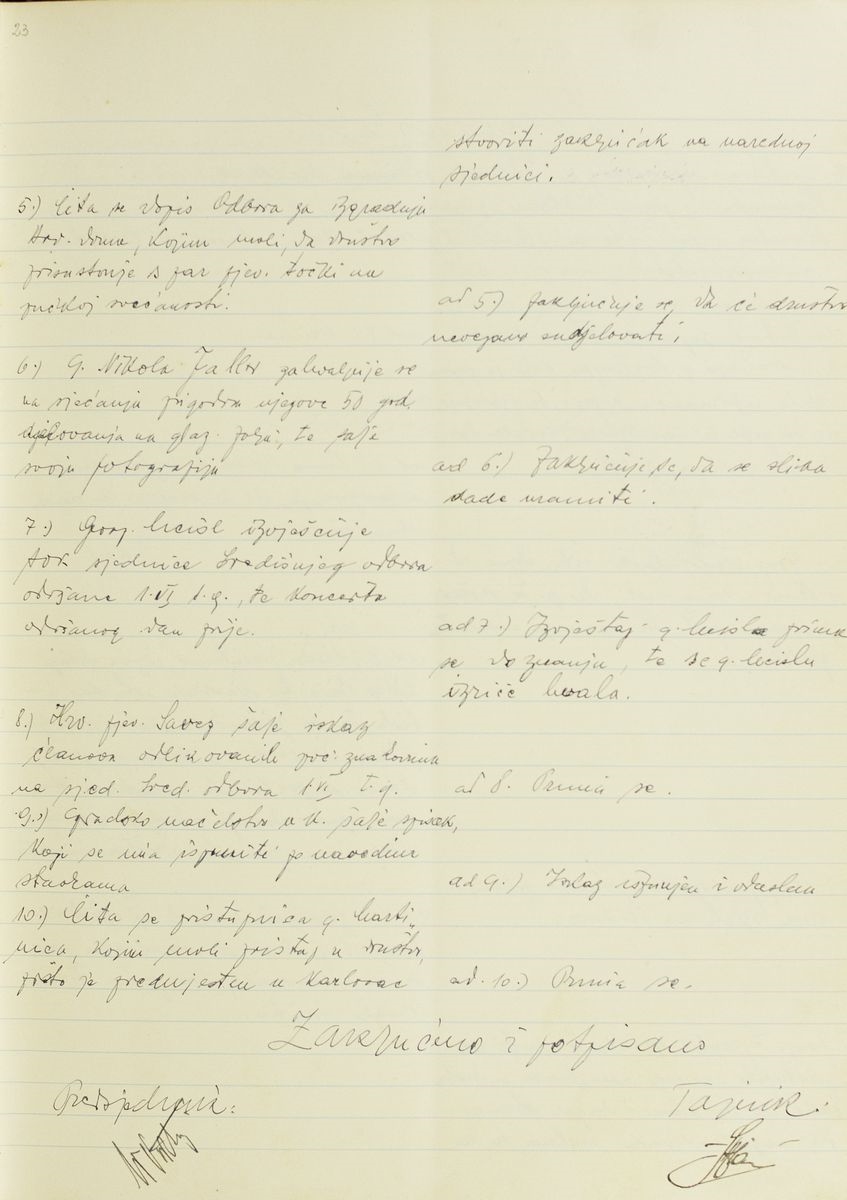 23
stvoriti zaključak na narednoj
sjednici.
5.) Čita se dopis Odbora za izgradnju
Hrv. doma, kojim moli, da društvo
prisustvuje s par pjev. točki na
pučkoj svečanosti.
ad 5.) Zaključuje se, da će društvo
sudjelovati.
6.) G. Nikola Faller zahvaljuje se
na sjećanju prigodom njegove 50 god.
djelovanja na glaz. polju, te šalje
svoju fotografiju
ad 6.) Zaključuje se, da se slika
dade uramiti.
7.) Gosp. izvješćuje
sjednice Središnjeg odbora
održane 1.VI t.g., te koncerta
održanog dan prije.
ad 7.) Izvještaj g. prima
se do znanja, te se g.
izriče hvala.
8.) Hrv. pjev. Savez šalje iskaz
članova odlikovanih poč. znakovima
na sjed. Sred. odbora 1 VI t.g.
ad 8. Prima se.
9.) Gradsko načelstvo u K. šalje spisak,
koji se ima ispuniti po navedenim
stavkama
ad 9.) Iskaz ispunjen i odaslan
10.) Čita se pristupnica g. Marti-
nica, kojim moli pristup u društvo,
pošto je premješten u Karlovac
ad. 10.) Prima se.
Zaključeno i potpisano
Predsjednik:
Tajnik: